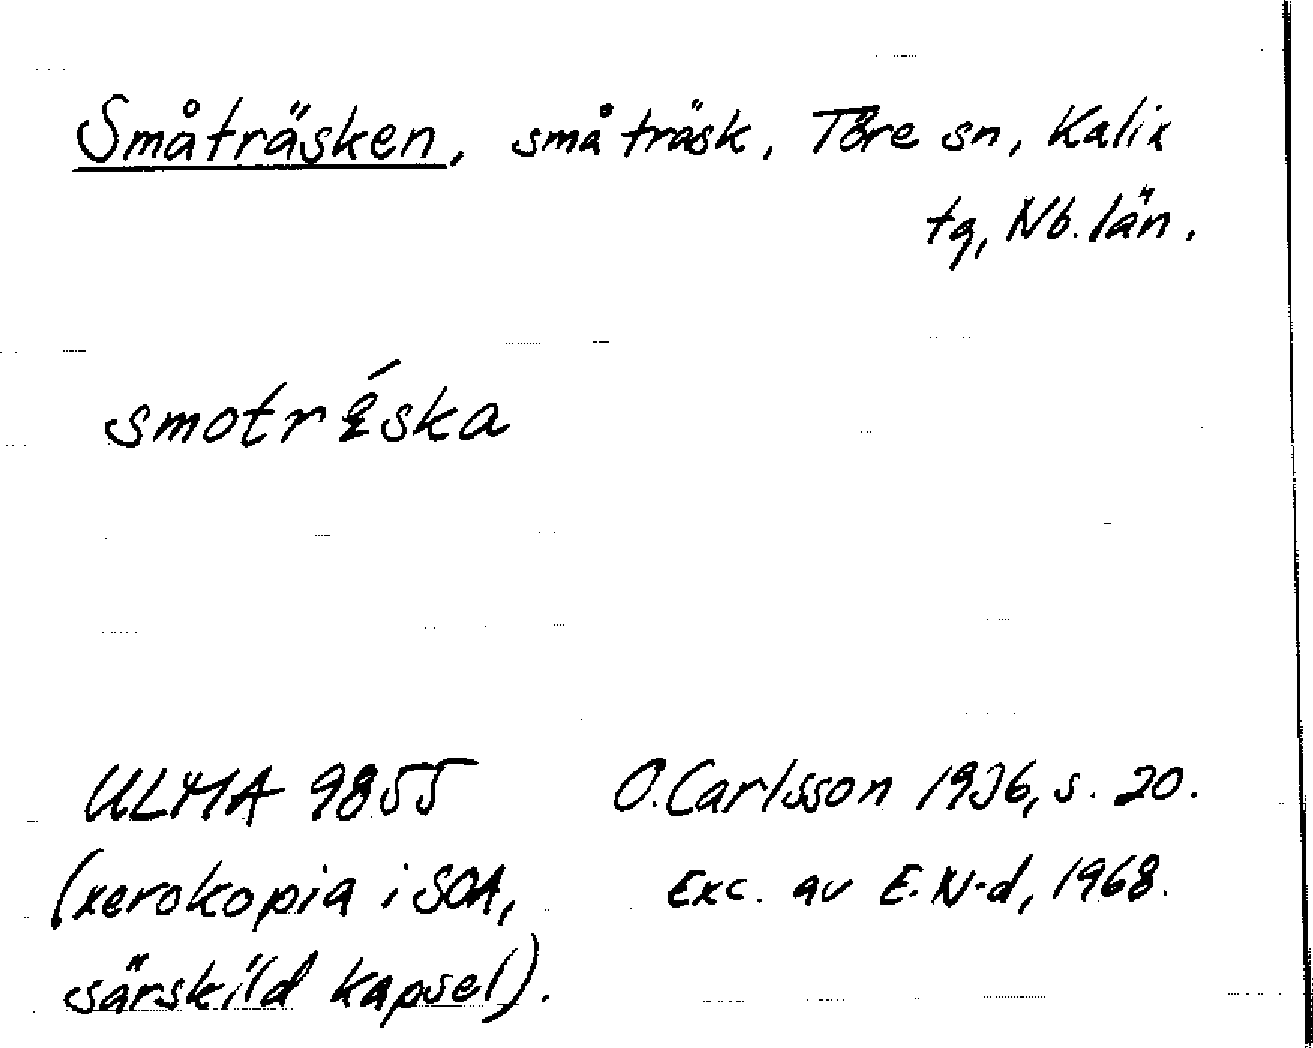 Småträsken, små träsk, Töre sn, Kalix
tg, Nb. län.
smotréska
ULMA 9855 O. Carlsson 1936, s. 20.
(xerokopia i SOA, Exc. av E. N-d, 1968.
särskild kapsel).